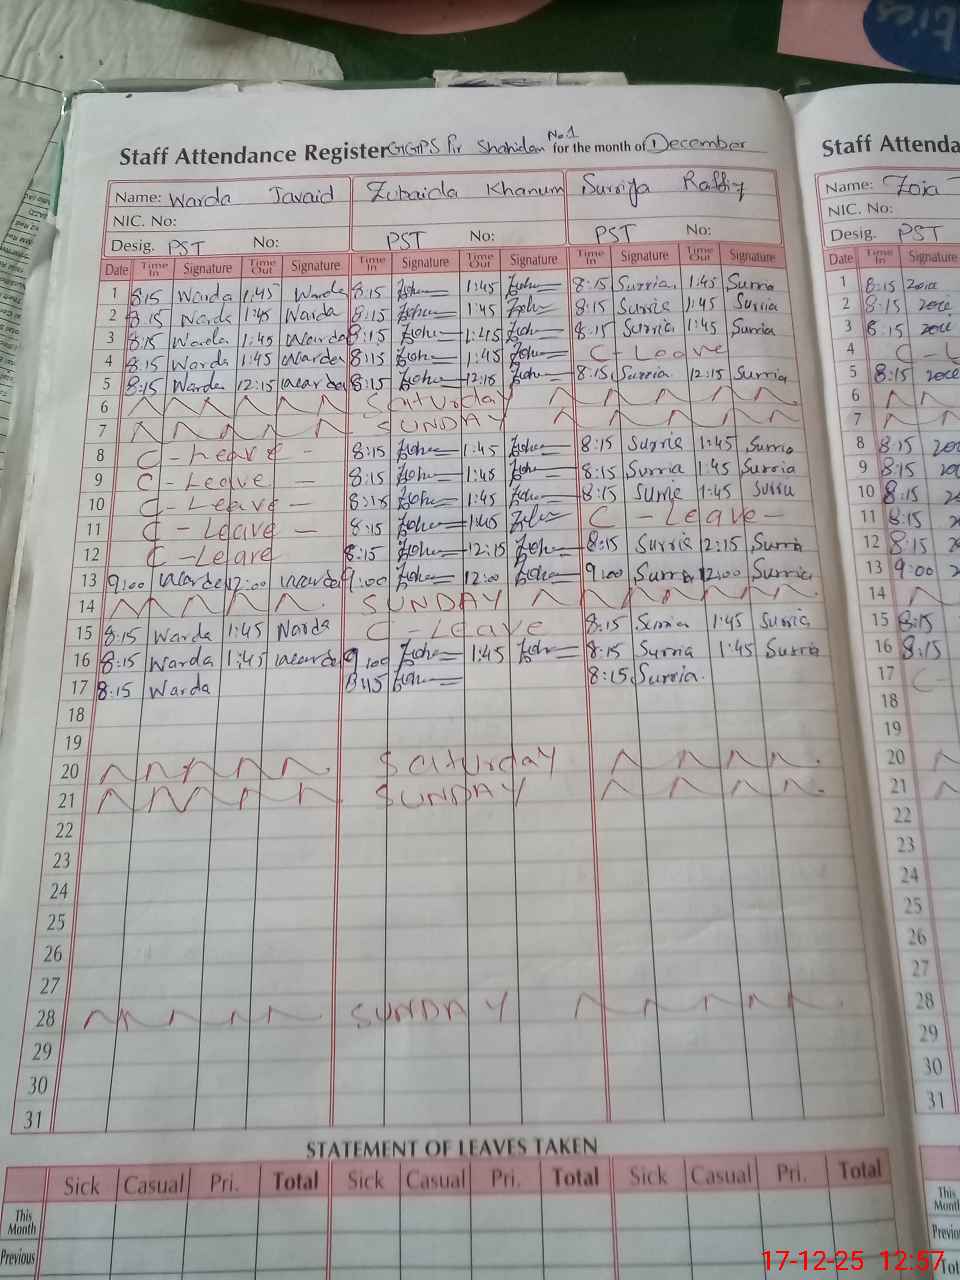 ties
Staff Attendance Register GGPS Pir Shahidan No.1 for the month of December
Name: Warda Javaid Zubaida Khanum Surriya Raffiq
NIC. No:
Desig. PST No: PST No: PST No:
Date Time In Signature Time Out Signature Time In Signature Time Out Signature Time In Signature Time Out Signature
1 8:15 Warda 1:45 Warda 8:15 1:45 8:15 Surria 1:45 Surria
2 8:15 Warda 1:45 Warda 8:15 1:45 8:15 Surria 1:45 Surria
3 8:15 Warda 1:45 Warda 8:15 1:45 8:15 Surria 1:45 Surria
4 8:15 Warda 1:45 Warda 8:15 1:45 C - Leave
5 8:15 Warda 12:15 Warda 8:15 12:15 8:15 Surria 12:15 Surria
6 Saturday
7 SUNDAY
8 C - Leave - 8:15 1:45 8:15 Surria 1:45 Surria
9 C - Leave - 8:15 1:45 8:15 Surria 1:45 Surria
10 C - Leave - 8:15 1:45 8:15 Surria 1:45 Surria
11 C - Leave - 8:15 1:45 C - Leave -
12 C - Leave 8:15 12:15 8:15 Surria 12:15 Surria
13 9:00 Warda 12:00 Warda 9:00 12:00 9:00 Surria 12:00 Surria
14 SUNDAY
15 8:15 Warda 1:45 Warda C - Leave 8:15 Surria 1:45 Surria
16 8:15 Warda 1:45 Warda 9:00 1:45 8:15 Surria 1:45 Surria
17 8:15 Warda 8:15 8:15 Surria
18
19
20 Saturday
21 SUNDAY
22
23
24
25
26
27
28 SUNDAY
29
30
31
STATEMENT OF LEAVES TAKEN
Sick Casual Pri. Total Sick Casual Pri. Total Sick Casual Pri. Total
This Month
Previous
Staff Attenda
Name: Zoia
NIC. No:
Desig. PST
Date Time In Signature
1 8:15
2 8:15
3 8:15
4 C - L
5 8:15
6
7
8 8:15
9 8:15
10 8:15
11 8:15
12 8:15
13 9:00
14
15 8:15
16 8:15
17 C -
18
19
20
21
22
23
24
25
26
27
28
29
30
31
This Month
Previous
Tot
17-12-25 12:57